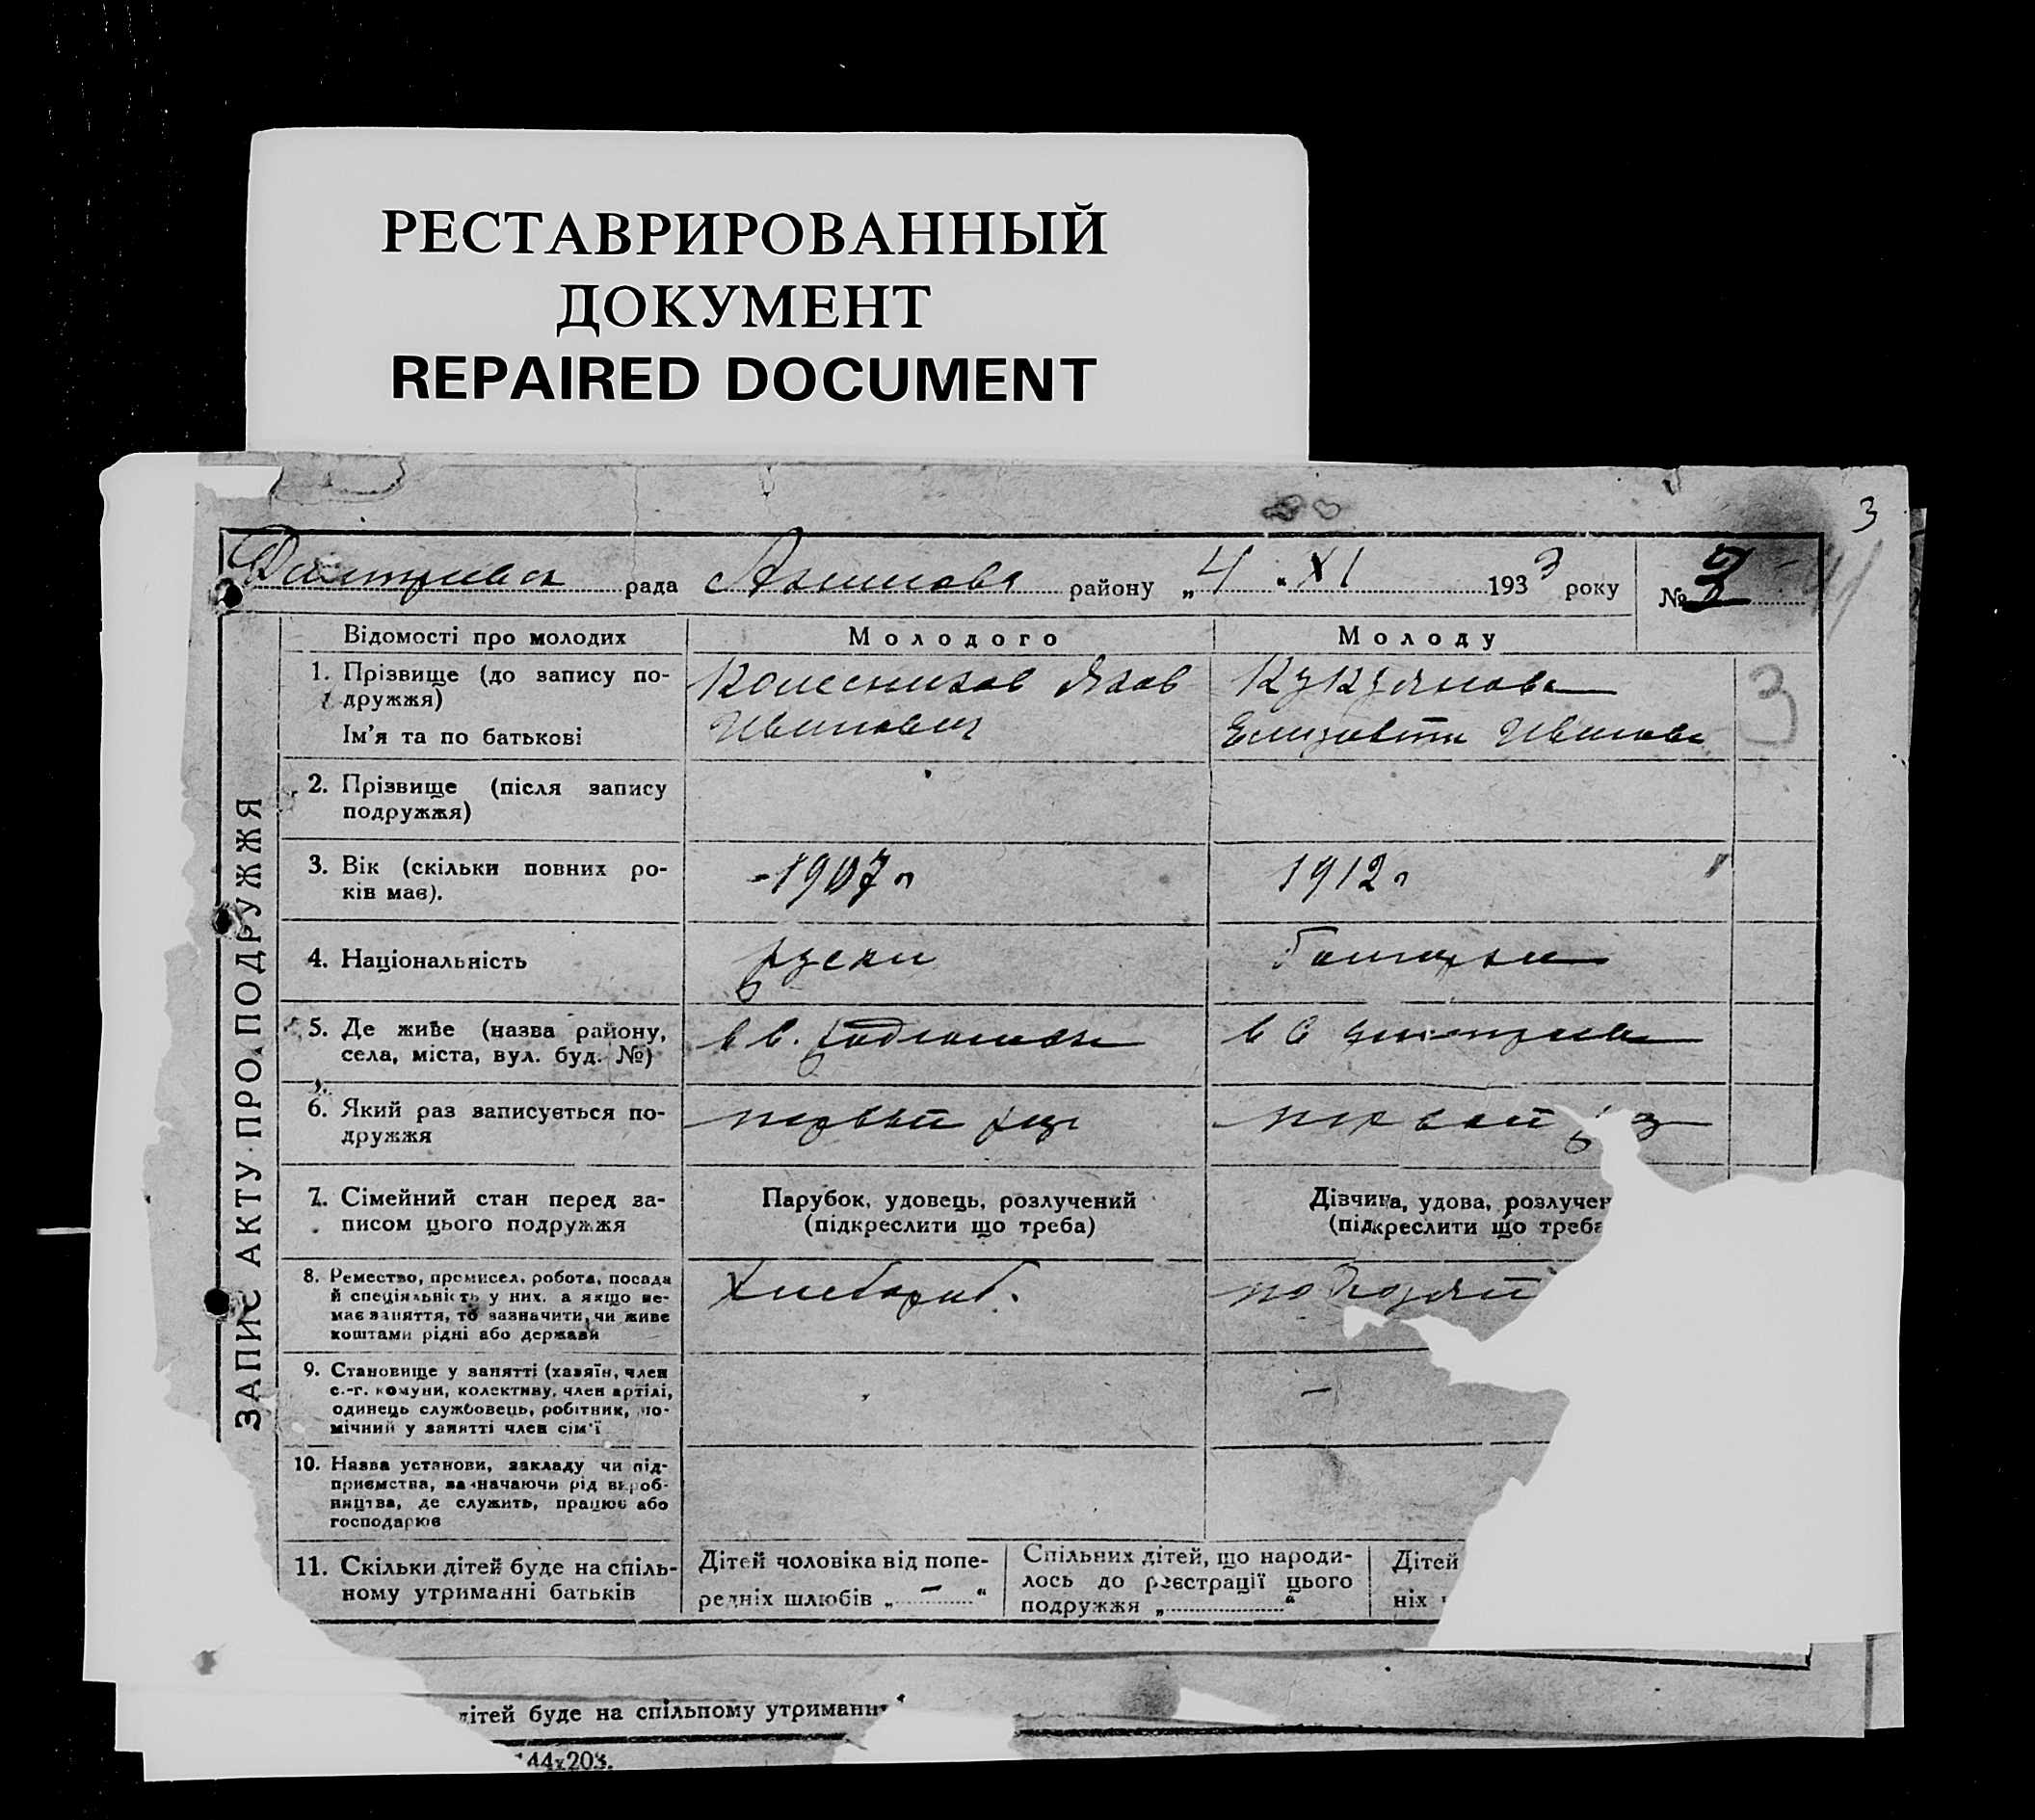 РЕСТАВРИРОВАННЫЙ
ДОКУМЕНТ
REPAIRED DOCUMENT
3
рада районУ „4 “ XI 1933 року № 3
Відомості про молодих Молодого Молоду
1. Прізвище (до запису по-
дружжя)
Колесников Яков
3
Ім'я та по батькові
Иванович
Елизавета Иванова
2. Прізвище (після запису
подружжя)
3. Вік (скільки повних ро-
ків має).
1907 г
1912 г
4. Національність
руски
болгарка
5. Де живе (назва району,
села, міста, вул. буд. №)
6. Який раз записується по-
дружжя
первый раз
первый
7. Сімейний стан перед за-
писом цього подружжя
Парубок, удовець, розлучений
(підкреслити що треба)
Дівчина, удова, розлучен
(підкреслити що треба
8. Ремество, промисел, робота, посада
й спеціяльність у них, а якщо не-
має заняття, то зазначити, чи живе
коштами рідні або держави
Хлебороб.
9. Становище у занятті (хазяїн, член
с.-г. комуни, колективу, член артілі,
одинець службовець, робітник, по-
мічний у занятті член сім'ї
10. Назва установи, закладу чи під-
приємства, зазначаючи рід вироб-
ництва, де служить, працює або
господарює
11. Скільки дітей буде на спіль-
ному утриманні батьків
Дітей чоловіка від попе-
редніх шлюбів „ — “
Спільних дітей, що народи-
лось до реєстрації цього
подружжя „ “
Дітей
ніх
ЗАПИС АКТУ ПРО ПОДРУЖЖЯ
дітей буде на спільному утриманн
144х203.